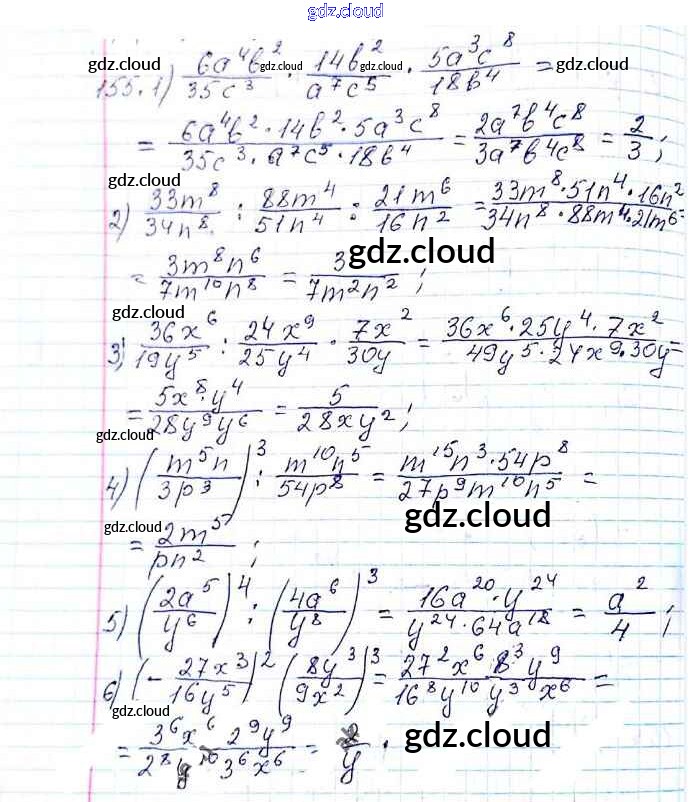 gdz.cloud
155. 1) 6a⁴b²/35c³ · 14b²/a⁷c⁵ · 5a³c⁸/18b⁴ =
gdz.cloud gdz.cloud gdz.cloud gdz.cloud
= 6a⁴b² · 14b² · 5a³c⁸ / 35c³ · a⁷c⁵ · 18b⁴ = 2a⁷b⁴c⁸/3a⁷b⁴c⁸ = 2/3 ;
gdz.cloud
2) 33m⁸/34n⁸ : 88m⁴/51n⁴ : 21m⁶/16n² = 33m⁸ · 51n⁴ · 16n² / 34n⁸ · 88m⁴ · 21m⁶ =
gdz.cloud
= 3m⁸n⁶/7m¹⁰n⁸ = 3/7m²n² ;
gdz.cloud
3) 36x⁶/19y⁵ : 24x⁹/25y⁴ · 7x²/30y = 36x⁶ · 25y⁴ · 7x² / 49y⁵ · 24x⁹ · 30y =
= 5x⁸ · y⁴/28y⁹y⁶ = 5/28xy² ;
gdz.cloud
4) (m⁵n/3p³)³ : m¹⁰n⁵/54p⁸ = m¹⁵n³ · 54p⁸/27p⁹m¹⁰n⁵ =
gdz.cloud gdz.cloud
= 2m⁵/pn² ;
gdz.cloud
5) (2a⁵/y⁶)⁴ : (4a⁶/y⁸)³ = 16a²⁰ · y²⁴/y²⁴ · 64a¹⁸ = a²/4 ;
gdz.cloud
6) (- 27x³/16y⁵)² (8y³/9x²)³ = 27²x⁶ 8³y⁹/16⁸y¹⁰ y³ x⁶ =
gdz.cloud
gdz.cloud
= 3⁶x⁶/2⁸y¹⁰ · 2⁹y⁹/3⁶x⁶ = 2/y .